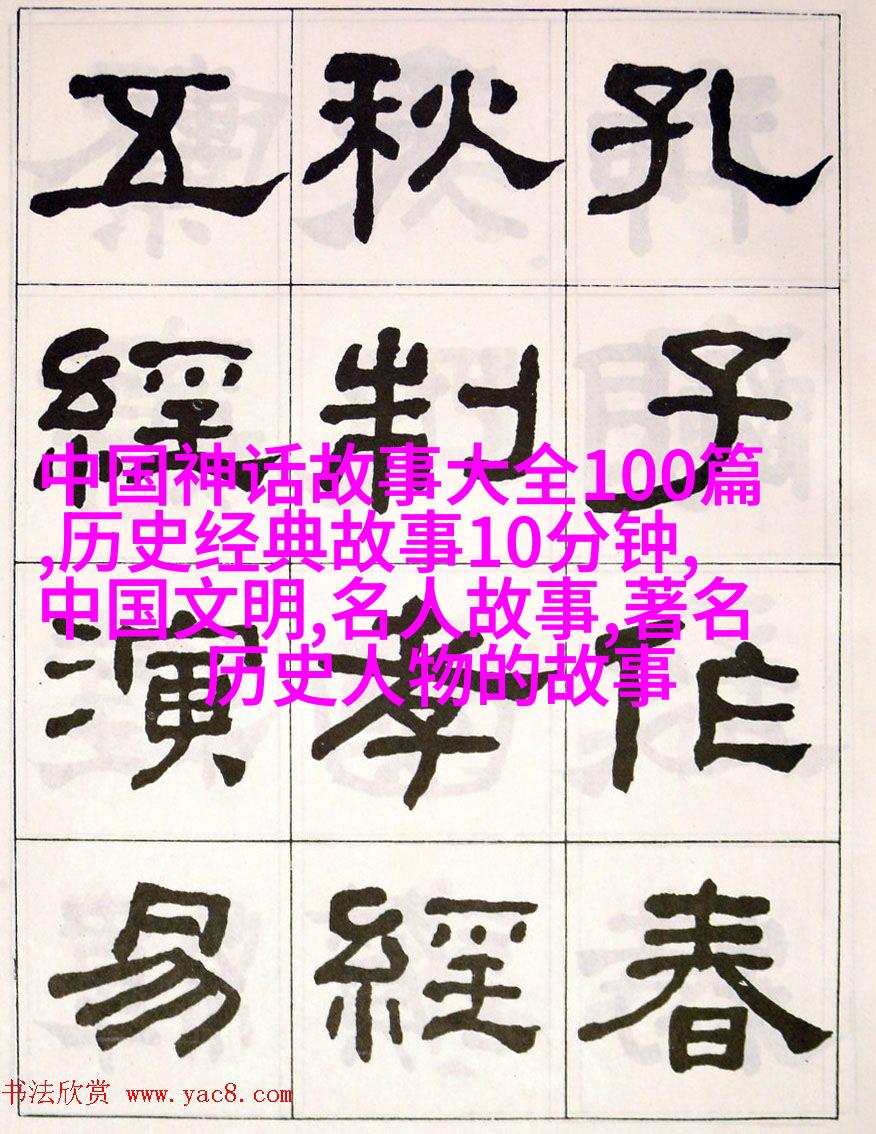 孔子作春
秋制孝經
五經演易
中国神话故事大全100篇
,历史经典故事10分钟,
中国文明,名人故事,著名
历史人物的故事
书法欣赏 www.yac8.com